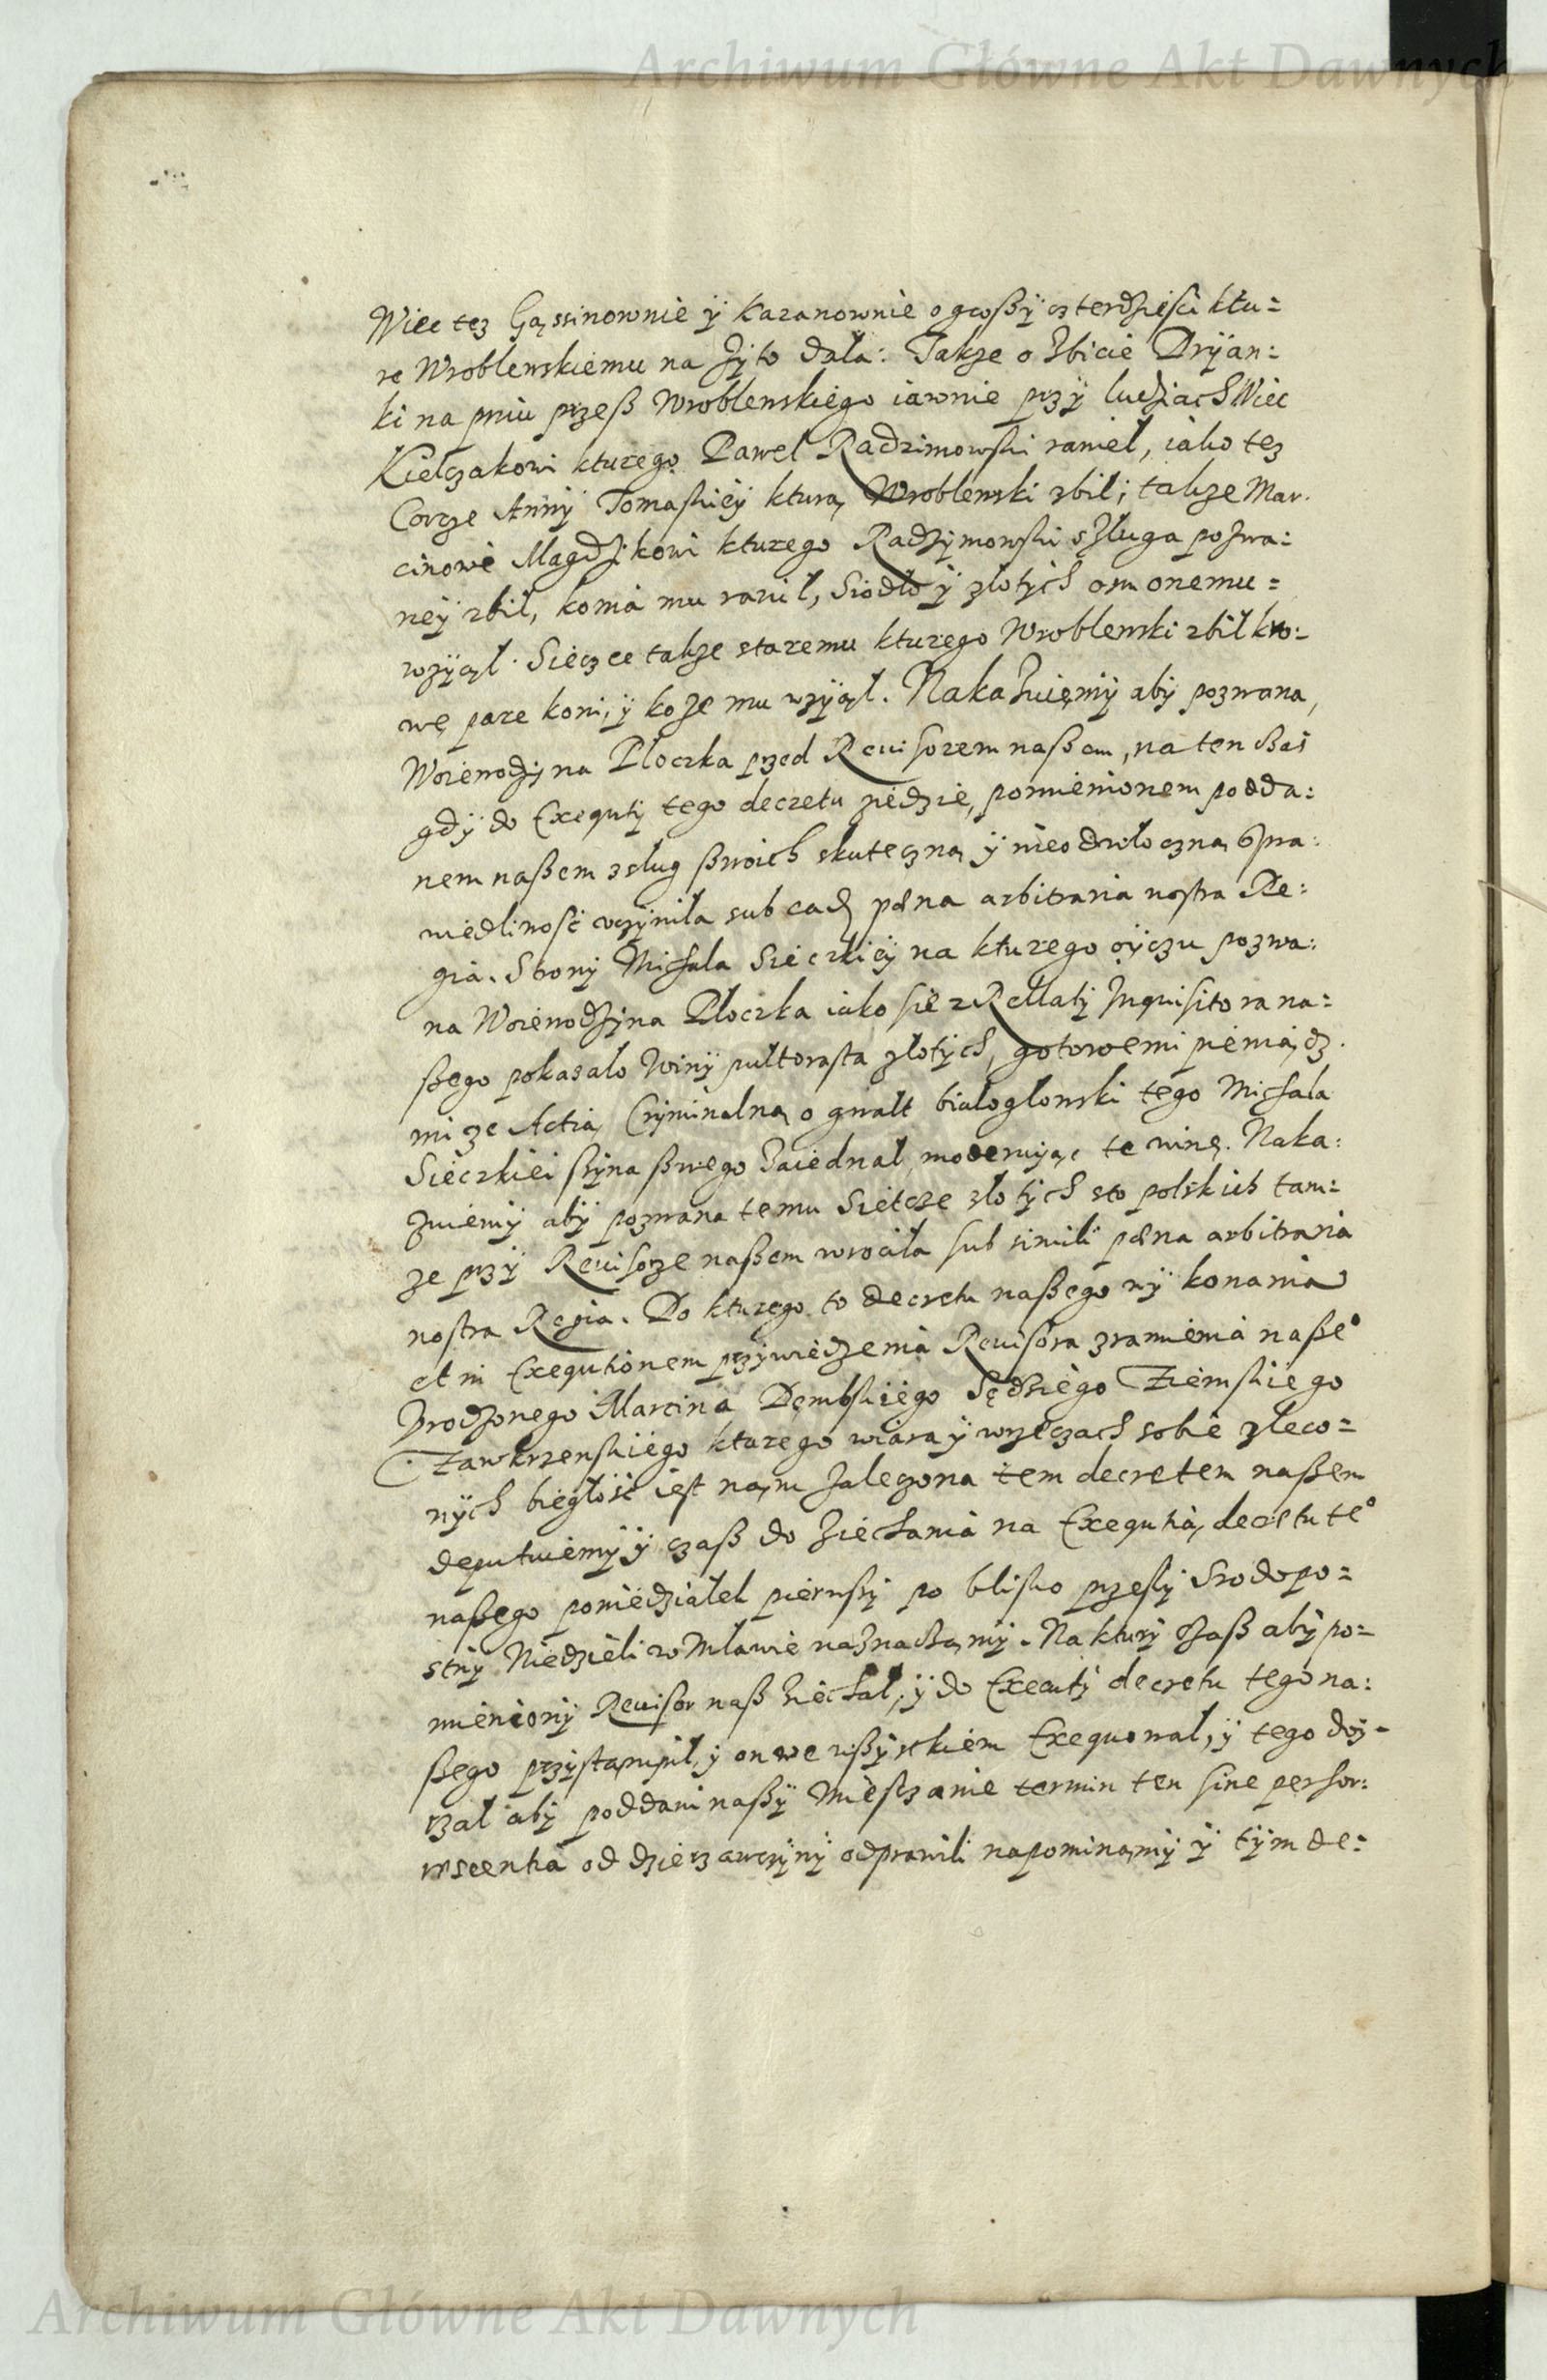 Archiwum Główne Akt Dawnych
Wiec tez Gąssinownie ÿ Kazanownie o großÿ czterdzieści ktu=
re Wroblewskiemu na Zÿto dała: Takze o Zbicie Drÿan=
ki na pniu przeß Wroblewskiego iawnie przÿ ludziach Wiec
Kielczakowi kturego Paweł Radzimowski raniel, iako tez
Corcze Annÿ Tomaskieÿ kturą Wroblewski zbił; takze Mar:
cinowi Magdzikowi kturego Radzÿmowski sługa pozwa:
neÿ zbil, konia mu ranil, Siodło ÿ złotÿch osm onemu=
wzÿąl. Sieczce takze staremu kturego Wroblewski zbil kro:
wę pare koni, ÿ koze mu wzÿąl. Nakazuięmÿ abÿ pozwana,
Woiewodzÿna Płoczka przed Reuisorem naßem, na ten czas
gdÿ do Exequtÿ tego decretu ziedzie, pomienionem podda:
nem naßem z sług ßwoich skuteczną ÿ nieodwłoczną spra:
wiedliność uczÿniła sub eadem pœna arbitraria nostra Re:
gia. Stronÿ Michala Sieczkieÿ na kturego oÿczu pozwa:
na Woiewodzÿna Płoczka iako sie z Rellatÿ Inquisitora na=
ßego pokasało Winÿ pułtorasta złotÿch, gotowemi pieniądz:
mi ze Actią Crÿminalną o gwałt białogłowski tego Michala
Sieczkiei sÿna ßwego Zaiednał, moderuiąc te winę. Naka:
zuiemÿ abÿ pozwana temu Sietcze złotÿch sto polskich tam=
ze przÿ Reuisorze naßem wrociła sub simili pœna arbitraria
nostra Regia. Do kturego to decretu naßego wÿkonania
et in Exequtionem przÿwiedzenia Reuisora zramienia naße°
Vrodzonego Marcina Dęmbskiego Sędziego Ziemskiego
Zawkrzenskiego kturego wiara ÿ wrzeczach sobie zleco=
nÿch biegłość iest nąm zaleczona tem decretem naßem
deputuiemÿ ÿ czaß do Ziechania na Exequtią decretu te°
naßego poniedziałek pierwßÿ po blisko przeßlÿ Srodopo=
stnÿ Niedzieli w Mławie naznaczamÿ. Na kturÿ czaß abÿ po=
mienionÿ Reuisor naß Ziechał, ÿ do Executÿ decretu tego na:
ßego przÿstąmpił, ÿ on we wßÿstkiem Exequował, ÿ tego doÿ=
rzał abÿ poddani naßÿ Mieszczanie termin ten sine perhor:
rescentia od dzierzawczÿnÿ odprawili napominamÿ ÿ tÿm de:
Archiwum Główne Akt Dawnych